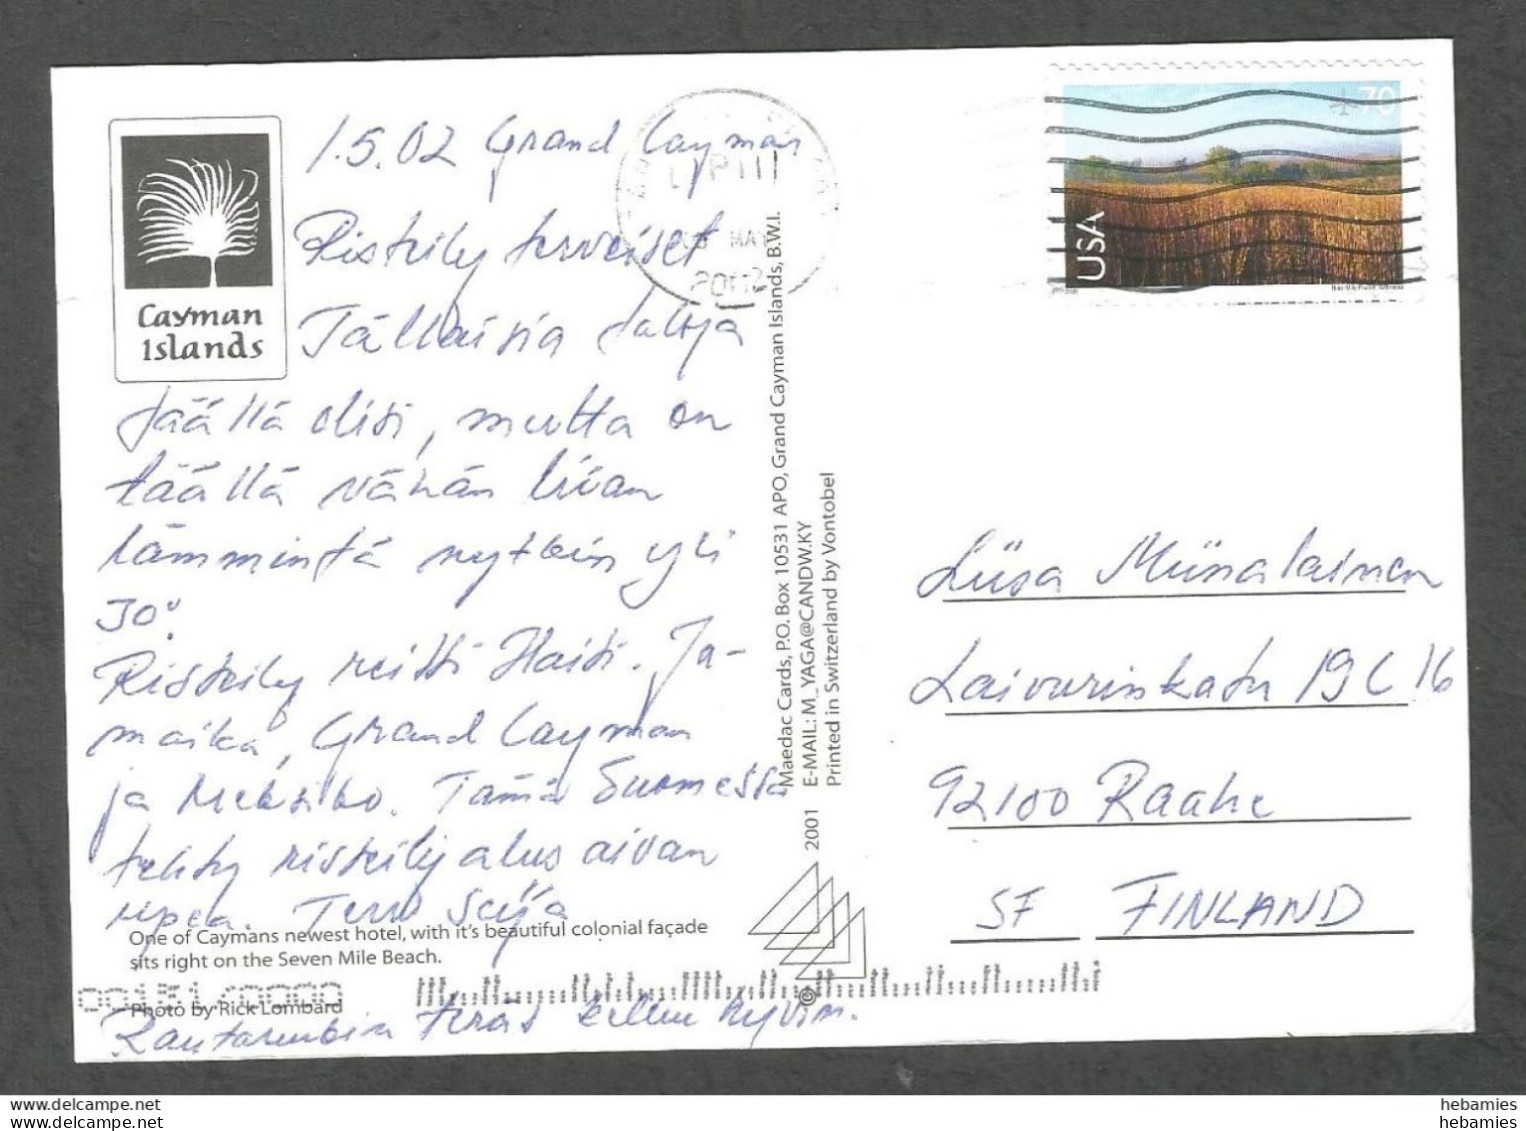 Cayman
Islands
1.5.02 Grand Cayman
Risteily terveiset
Tällaisia taloja
täällä olisi, mutta on
täällä vähän liian
lämmintä nytkin yli
30°.
Risteily reitti Haiti. Ja-
maika, Grand Cayman
ja Meksiko. Tämä Suomessa
tehty risteilyalus aivan
upea. Terv Seija
One of Caymans newest hotel, with it's beautiful colonial façade
sits right on the Seven Mile Beach.
Photo by Rick Lombard
kyvin.
Maedac Cards, P.O. Box 10531 APO, Grand Cayman Islands, B.W.I.
E-MAIL: M_YAGA@CANDW.KY
Printed in Switzerland by Vontobel
© 2001
MAY
2002
70
USA
Liisa Miinalainen
Laivurinkatu 19 C 16
92100 Raahe
SF FINLAND
hebamies
hebamies
hebamies
hebamies